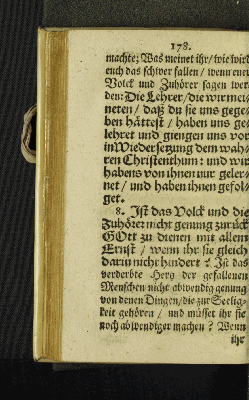 178.
machte; Was meinet ihr / wie wird
euch das schwer fallen / wenn euer
Volck und Zuhörer sagen wer-
den: Die Lehrer / die wir mei-
neten / daß du sie uns gege-
ben hättest / haben uns ge-
lehret und giengen uns vor
in Widersetzung dem wah-
ren Christenthum: und wir
habens von ihnen nur geler-
net / und haben ihnen gefol-
get.
8. Ist das Volck und die
Zuhörer nicht genung zurück
GOtt zu dienen mit allem
Ernst / wenn ihr sie gleich
darin nicht hindert? Ist das
verderbte Hertz der gefallenen
Menschen nicht abwendig genung
von denen Dingen / die zur Seelig-
keit gehören / und müsset ihr sie
noch abwendiger machen? Wenn
ihr